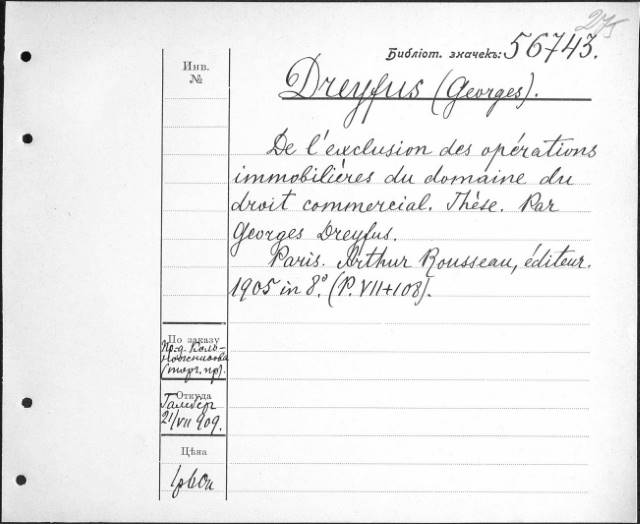 275
Библіот. значекъ: 56743.
Инв.
№
Dreyfus (Georges).
De l'exclusion des opérations
immobilières du domaine du
droit commercial. Thèse. Par
Georges Dreyfus.
Paris. Arthur Rousseau, éditeur.
1905 in 8.° (P. VII+108).
По заказу
(торг. пр).
Откуда
21/VII 909.
Цѣна
1р 60к